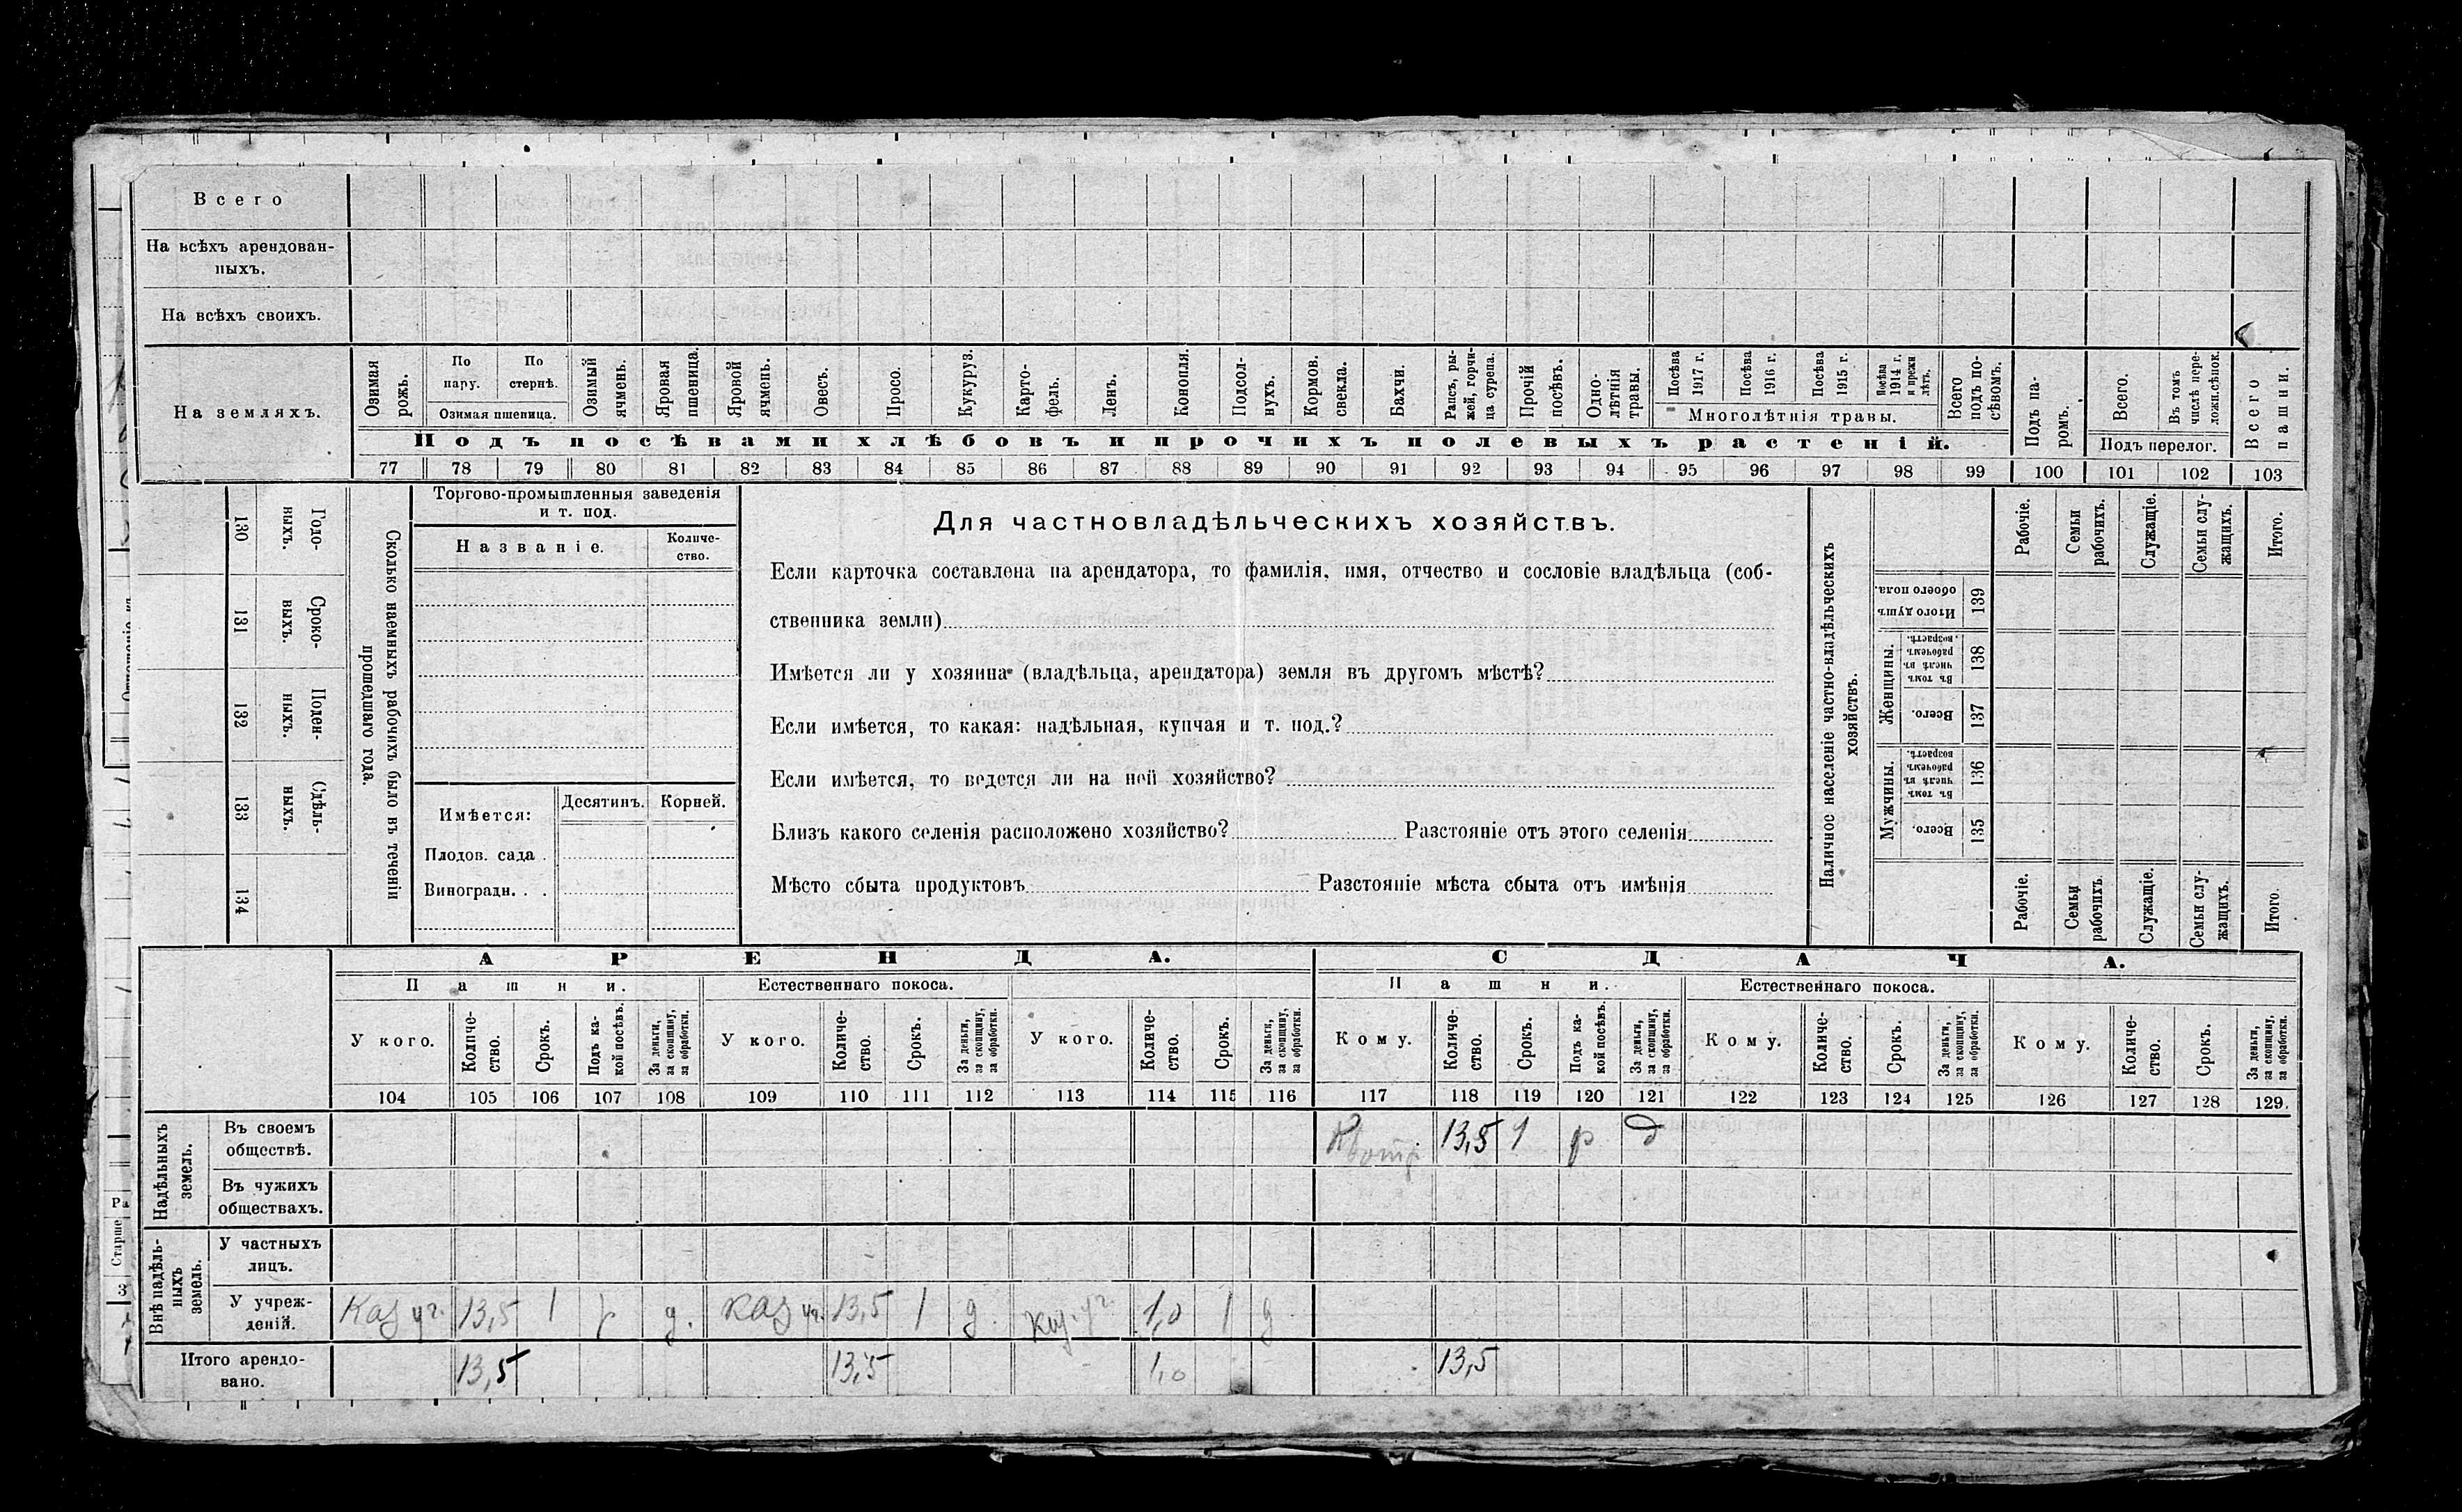 Всего
На всѣхъ арендован-
ныхъ.
На всѣхъ своихъ.
На земляхъ.
Озимая рожь.
По пару.
По стернѣ.
Озимая пшеница.
Озимый ячмень.
Яровая пшеница.
Яровой ячмень.
Овесъ.
Просо.
Кукуруз.
Карто-
фель.
Ленъ.
Конопля.
Подсол-
нухъ.
Кормов. свекла.
Бахчи.
Рапсъ, ры-
жей, горчи-
ца сурепа.
Прочій посѣвъ.
Одно-
лѣтнія травы.
Посѣва 1917 г.
Посѣва 1916 г.
Посѣва 1915 г.
Посѣва 1914 г. и прежн лѣтъ.
Многолѣтнія травы.
Всего подъ по-
сѣвомъ.
Подъ па-
ромъ.
Всего.
Въ томъ числѣ пере-
ложн.сѣнок.
Подъ перелог.
Всего пашни.
Подъ посѣвами хлѣбовъ и прочихъ полевыхъ растеній.
77 78 79 80 81 82 83 84 85 86 87 88 89 90 91 92 93 94 95 96 97 98 99 100 101 102 103
130 Годо-
выхъ.
131 Сроко-
выхъ.
132 Поден-
ныхъ.
133 Сдѣль-
ныхъ.
134
Сколько наемныхъ рабочихъ было въ теченіи
прошедшаго года.
Торгово-промышленныя заведенія
и т. под.
Названіе.
Количе-
ство.
Имѣется:
Десятинъ.
Корней.
Плодов. сада .
Виноградн. . .
Для частновладѣльческихъ хозяйствъ.
Если карточка составлена на арендатора, то фамилія, имя, отчество и сословіе владѣльца (соб-
ственника земли)
Имѣется ли у хозяина (владѣльца, арендатора) земля въ другомъ мѣстѣ?
Если имѣется, то какая: надѣльная, купчая и т. под.?
Если имѣется, то ведется ли на ней хозяйство?
Близъ какого селенія расположено хозяйство? Разстояніе отъ этого селенія
Мѣсто сбыта продуктовъ Разстояніе мѣста сбыта отъ имѣнія
Наличное населеніе частно-владѣльческихъ
хозяйствъ.
Рабочіе.
Семьи рабочихъ.
Служащіе.
Семьи слу-
жащихъ.
Итого.
Итого душъ обоего пола.
139
Женщины.
Въ томъ числѣ въ рабочемъ возрастѣ.
138
Всего.
137
Мужчины.
Въ томъ числѣ въ рабочемъ возрастѣ.
136
Всего.
135
Рабочіе.
Семьи рабочихъ.
Служащіе.
Семьи слу-
жащихъ.
Итого.
АРЕНДА.
СДАЧА.
Пашни.
Естественнаго покоса.
Пашни.
Естественнаго покоса.
У кого.
Количе-
ство.
Срокъ.
Подъ ка-
кой посѣвъ.
За деньги, за скопщину, за обработки.
У кого.
Количе-
ство.
Срокъ.
За деньги, за скопщину, за обработки.
У кого.
Количе-
ство.
Срокъ.
За деньги, за скопщину, за обработки.
Кому.
Количе-
ство.
Срокъ.
Подъ ка-
кой посѣвъ.
За деньги, за скопщину, за обработки.
Кому.
Количе-
ство.
Срокъ.
За деньги, за скопщину, за обработки.
Кому.
Количе-
ство.
Срокъ.
За деньги, за скопщину, за обработки.
104 105 106 107 108 109 110 111 112 113 114 115 116 117 118 119 120 121 122 123 124 125 126 127 128 129.
Надѣльныхъ земель.
Въ своемъ
обществѣ.
13,5 1 р д
Въ чужихъ
обществахъ.
Внѣ надѣль-
ныхъ земель.
У частныхъ
лицъ.
У учреж-
деній.
Каз уч. 13,5 1 д. каз уч. 13,5 1 д. каз. уч. 1,0 1 д
Итого арендо-
вано.
13,5 13,5 1,0 13,5
Ра
Старше
3